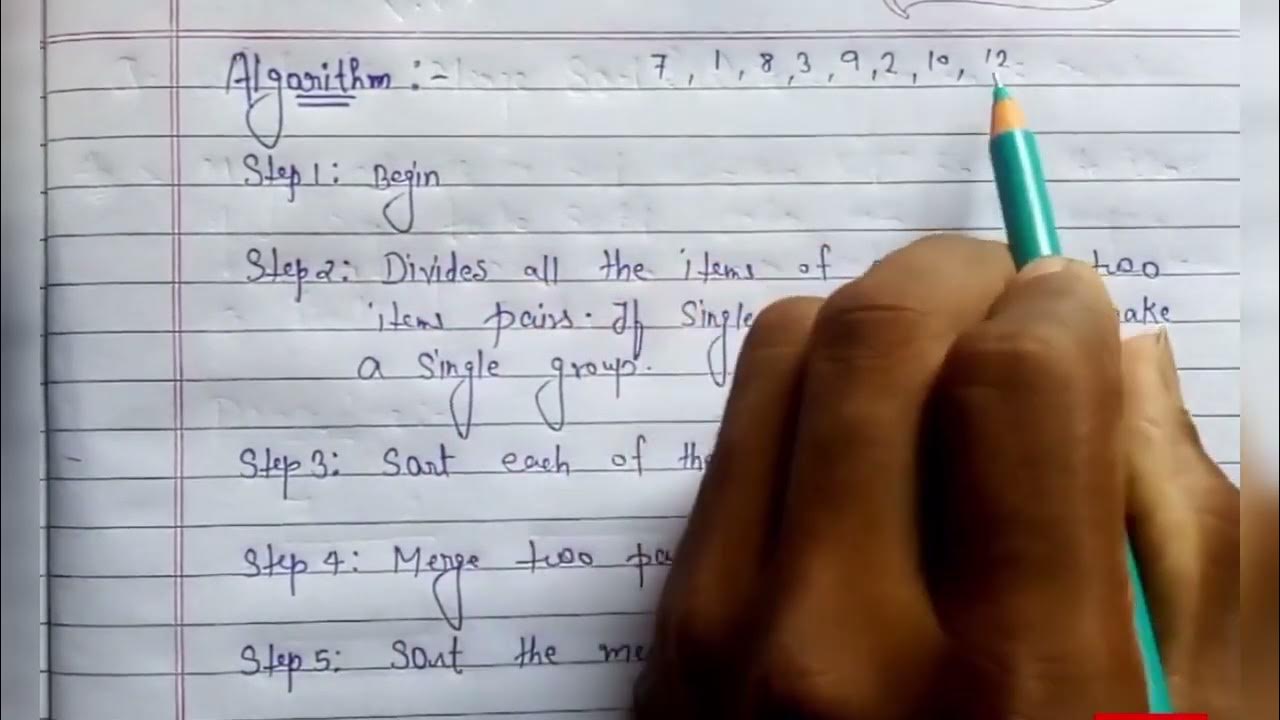 Algarithm :- 7, 1, 8, 3, 9, 2, 10, 12
Step 1: Begin
Step 2: Divides all the items of two
items pairs. If Single
a Single group.
Step 3: Sort each of
Step 4: Merge two
Step 5: Sort the